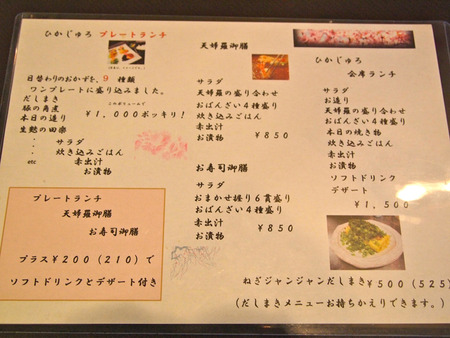 ひかじゅろ プレートランチ
日替わりのおかずを、9 種類
ワンプレートに盛り込みました。
だしまき
豚の角煮
このボリュームで
¥1,000ポッキリ!
本日の造り
生麩の田楽
・ サラダ
・ 炊き込みごはん
・ 赤出汁
etc お漬物
プレートランチ
天婦羅御膳
お寿司御膳
プラス¥200(210)で
ソフトドリンクとデザート付き
天婦羅御膳
サラダ
天婦羅の盛り合わせ
おばんざい4種盛り
炊き込みごはん
赤出汁
お漬物 ¥850
お寿司御膳
サラダ
おまかせ握り6貫盛り
おばんざい4種盛り
赤出汁
お漬物 ¥850
ひかじゅろ
会席ランチ
サラダ
お造り
天婦羅の盛り合わせ
おばんざい4種盛り
本日の焼き物
炊き込みごはん
赤出汁
お漬物
ソフトドリンク
デザート
¥1,500
ねぎジャンジャンだしまき ¥500(525)
(だしまきメニューお持ちかえりできます。)